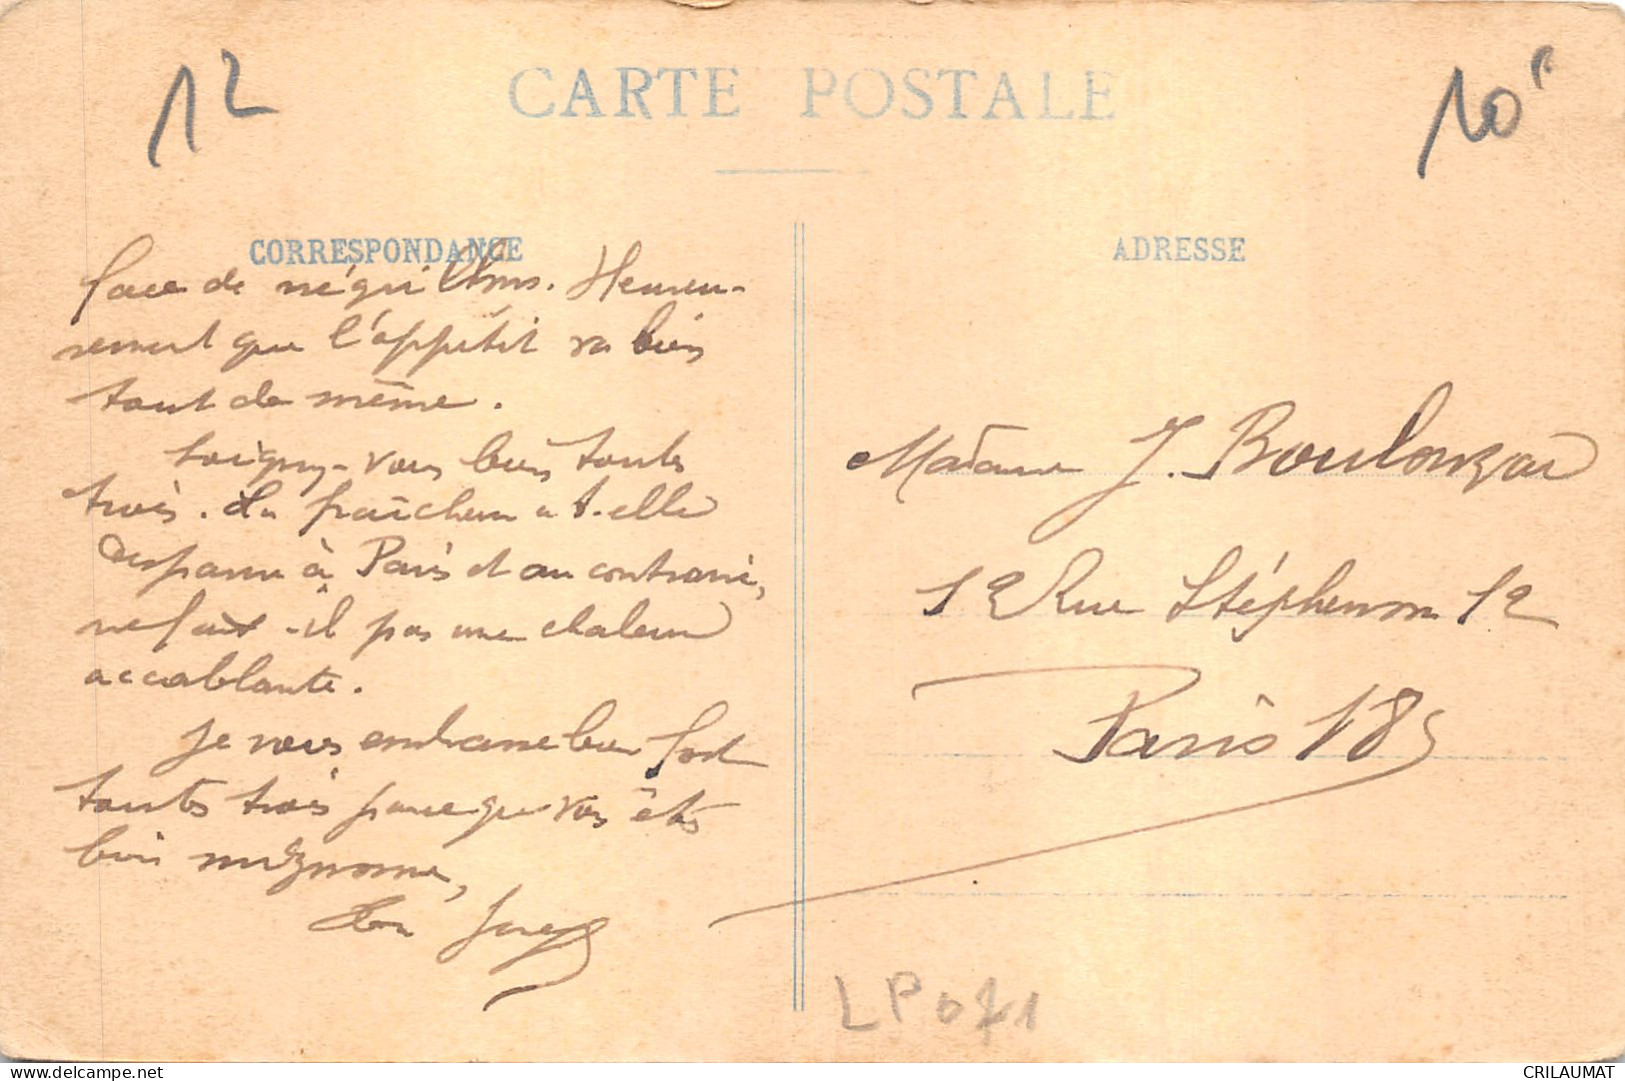 12
CARTE POSTALE
10
CORRESPONDANCE
face de négrillons. Heureu-
sement que l'appétit va bien
tout de même.
Soignez-vous bien toutes
trois. La fraîcheur a t-elle
disparue à Paris et au contraire,
ne fait-il pas une chaleur
accablante.
Je vous embrasse bien fort
toutes trois parce que vous êtes
bien mignonne,
Ton
ADRESSE
Madame J. Boulonzac
12 Rue Stéphenson 12
Paris 18e
LP071
delcampe.net
CRILAUMAT